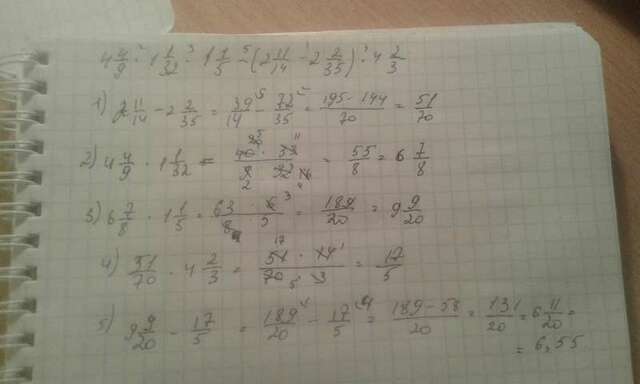 4 4/9 · 1 1/32 · 1 1/5 - (2 11/14 - 2 2/35) · 4 2/3
1) 2 11/14 - 2 2/35 = 39/14 - 72/35 = 195-144/70 = 51/70
2) 4 4/9 · 1 1/32 = 40 · 33/9 · 32 = 55/8 = 6 7/8
3) 6 7/8 · 1 1/5 = 63 · 6/8 · 5 = 189/20 = 9 9/20
4) 51/70 · 4 2/3 = 51 · 14/70 · 3 = 17/5
5) 9 9/20 - 17/5 = 189/20 - 17/5 = 189-58/20 = 131/20 = 6 11/20 =
= 6,55